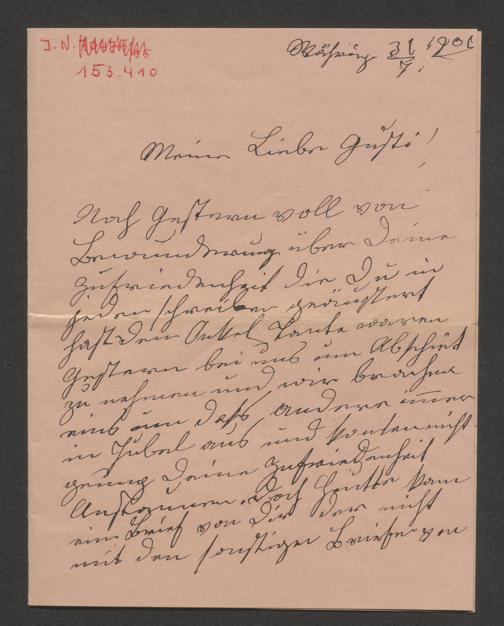 J. N.
153.410
Währing 31/7. 1901
Meine Liebe Gusti!
Noch Gestern voll von
Bewunderung über Deine
Zufriedenheit die Du in
jeden schreiben geäusert
hast den Onkel Tante waren
Gestern bei uns um Abschiet
zu nehmen und wir brachen
eins um daß andere immer
in Jubel aus und konten nicht
genug Deine Zufriedenheit
Anstaunen. Doch Heute kam
ein Brief von Dir der nicht
mit den sonstigen Briefen von